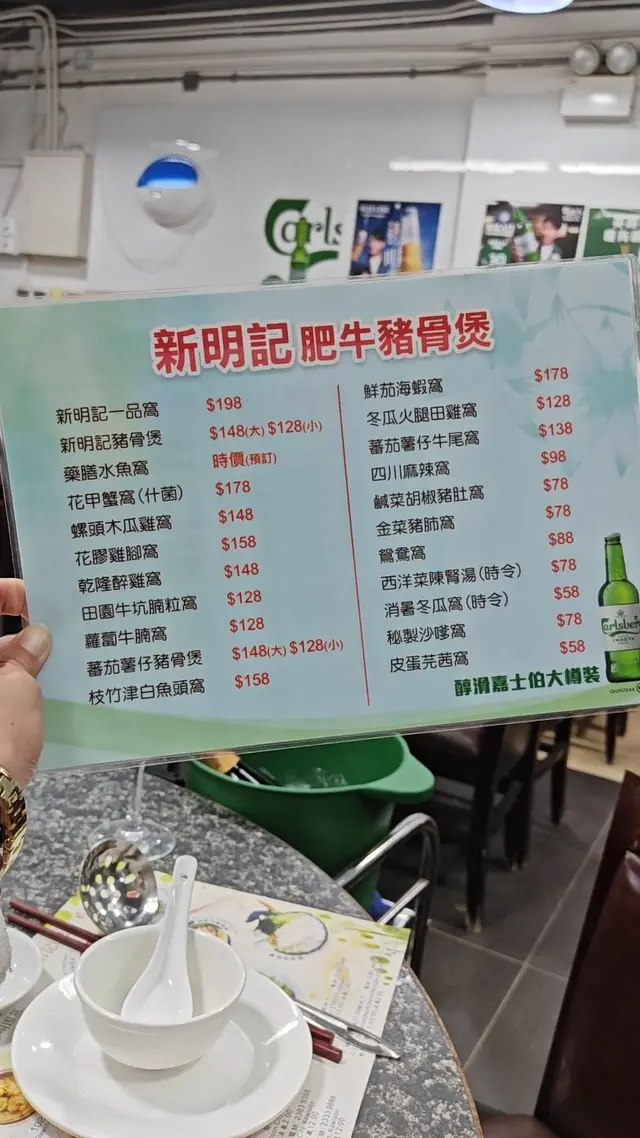 Carls
新明記肥牛豬骨煲
新明記一品窩 $198
新明記豬骨煲 $148(大) $128(小)
藥膳水魚窩 時價(預訂)
花甲蟹窩(什菌) $178
螺頭木瓜雞窩 $148
花膠雞腳窩 $158
乾隆醉雞窩 $148
田園牛坑腩粒窩 $128
蘿蔔牛腩窩 $128
蕃茄薯仔豬骨煲 $148(大) $128(小)
枝竹津白魚頭窩 $158
鮮茄海蝦窩 $178
冬瓜火腿田雞窩 $128
蕃茄薯仔牛尾窩 $138
四川麻辣窩 $98
鹹菜胡椒豬肚窩 $78
金菜豬肺窩 $78
鴛鴦窩 $88
西洋菜陳腎湯(時令) $78
消暑冬瓜窩(時令) $58
秘製沙嗲窩 $78
皮蛋芫茜窩 $58
醇滑嘉士伯大樽裝
Carlsberg
SMOOTH